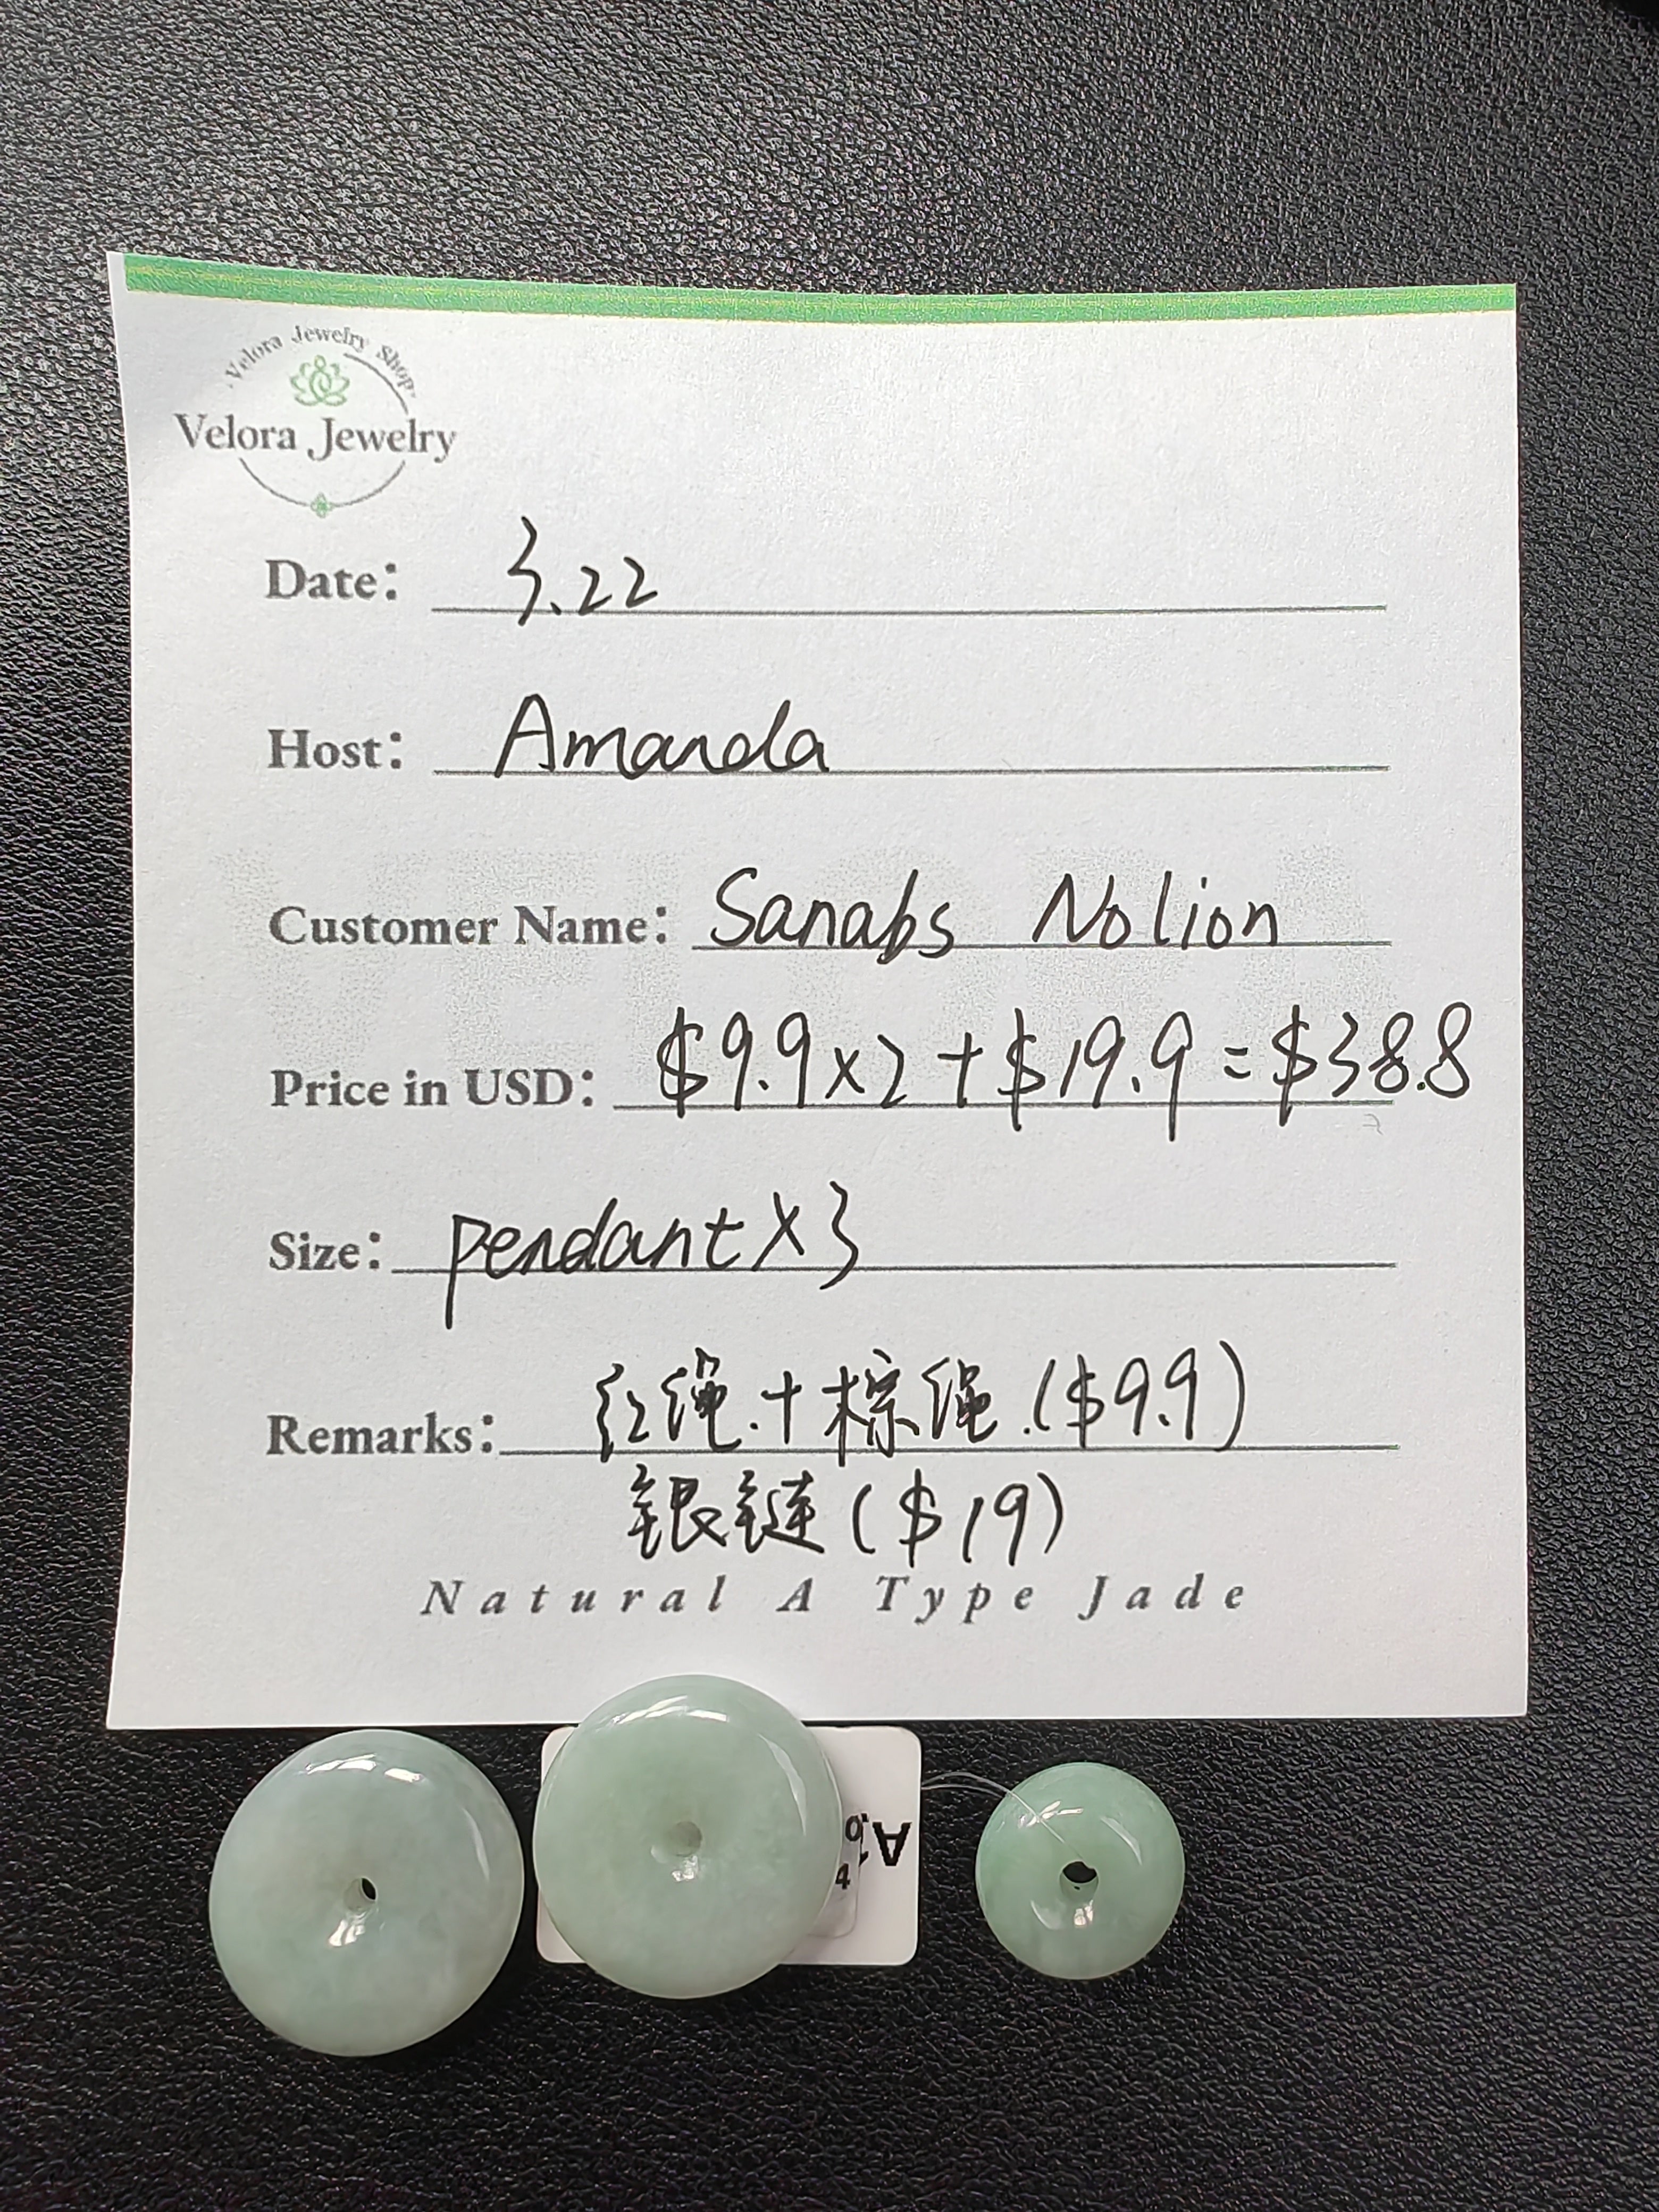 · Velora Jewelry Shop ·
Velora Jewelry
Date: 3.22
Host: Amanda
Customer Name: Sanabs Nolion
Price in USD: $9.9x2+$19.9=$38.8
Size: pendantX3
Remarks: 红绳.+棕绳.($9.9)
银链($19)
Natural A Type Jade
A